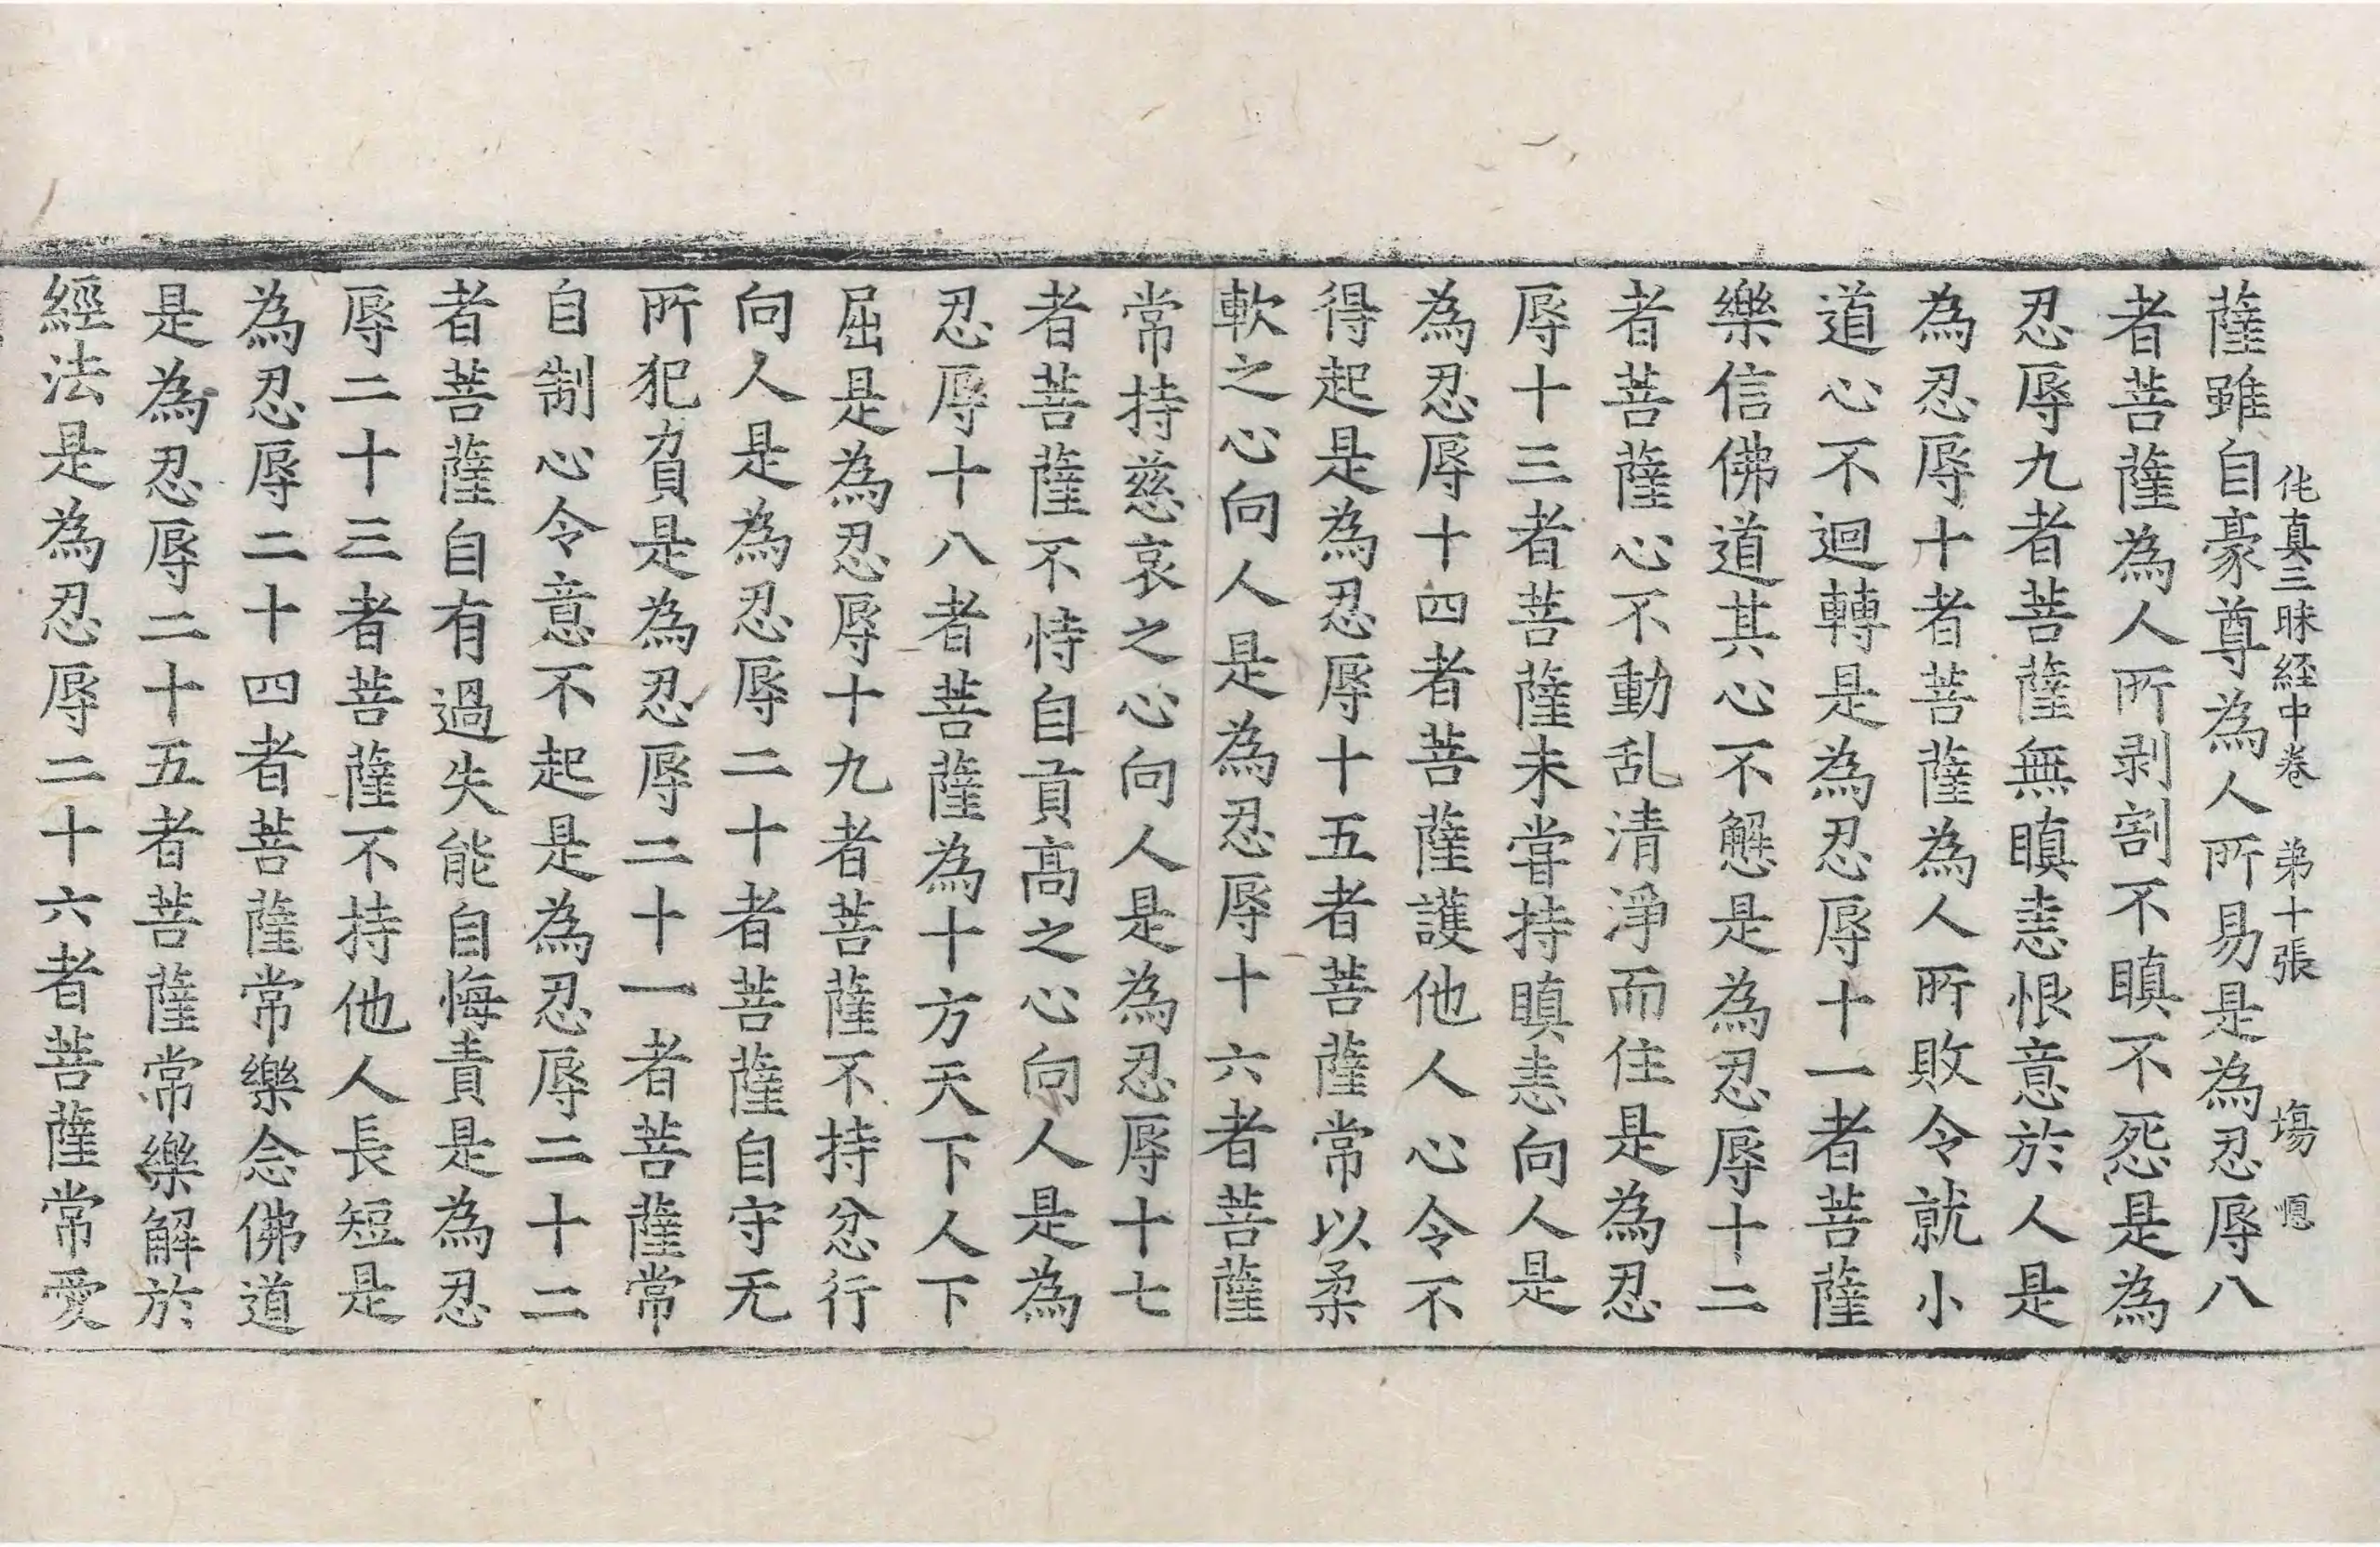 伅真三昧経中卷 弟十張 塲 𢠢
薩雖自豪尊為人所易是為忍辱八
者菩薩為人所剥割不瞋不㤪是為
忍辱九者菩薩無瞋恚恨意於人是
為忍辱十者菩薩為人所敗令就小
道心不迴轉是為忍辱十一者菩薩
樂信佛道其心不懈是為忍辱十二
者菩薩心不動乱清淨而住是為忍
辱十三者菩薩未甞持瞋恚向人是
為忍辱十四者菩薩護他人心令不
得起是為忍辱十五者菩薩常以柔
軟之心向人是為忍辱十六者菩薩
常持慈哀之心向人是為忍辱十七
者菩薩不恃自貢高之心向人是為
忍辱十八者菩薩為十方天下人下
屈是為忍辱十九者菩薩不持忿行
向人是為忍辱二十者菩薩自守无
所犯負是為忍辱二十一者菩薩常
自制心令意不起是為忍辱二十二
者菩薩自有過失能自悔責是為忍
辱二十三者菩薩不持他人長短是
為忍辱二十四者菩薩常樂念佛道
是為忍辱二十五者菩薩常樂解於
經法是為忍辱二十六者菩薩常愛